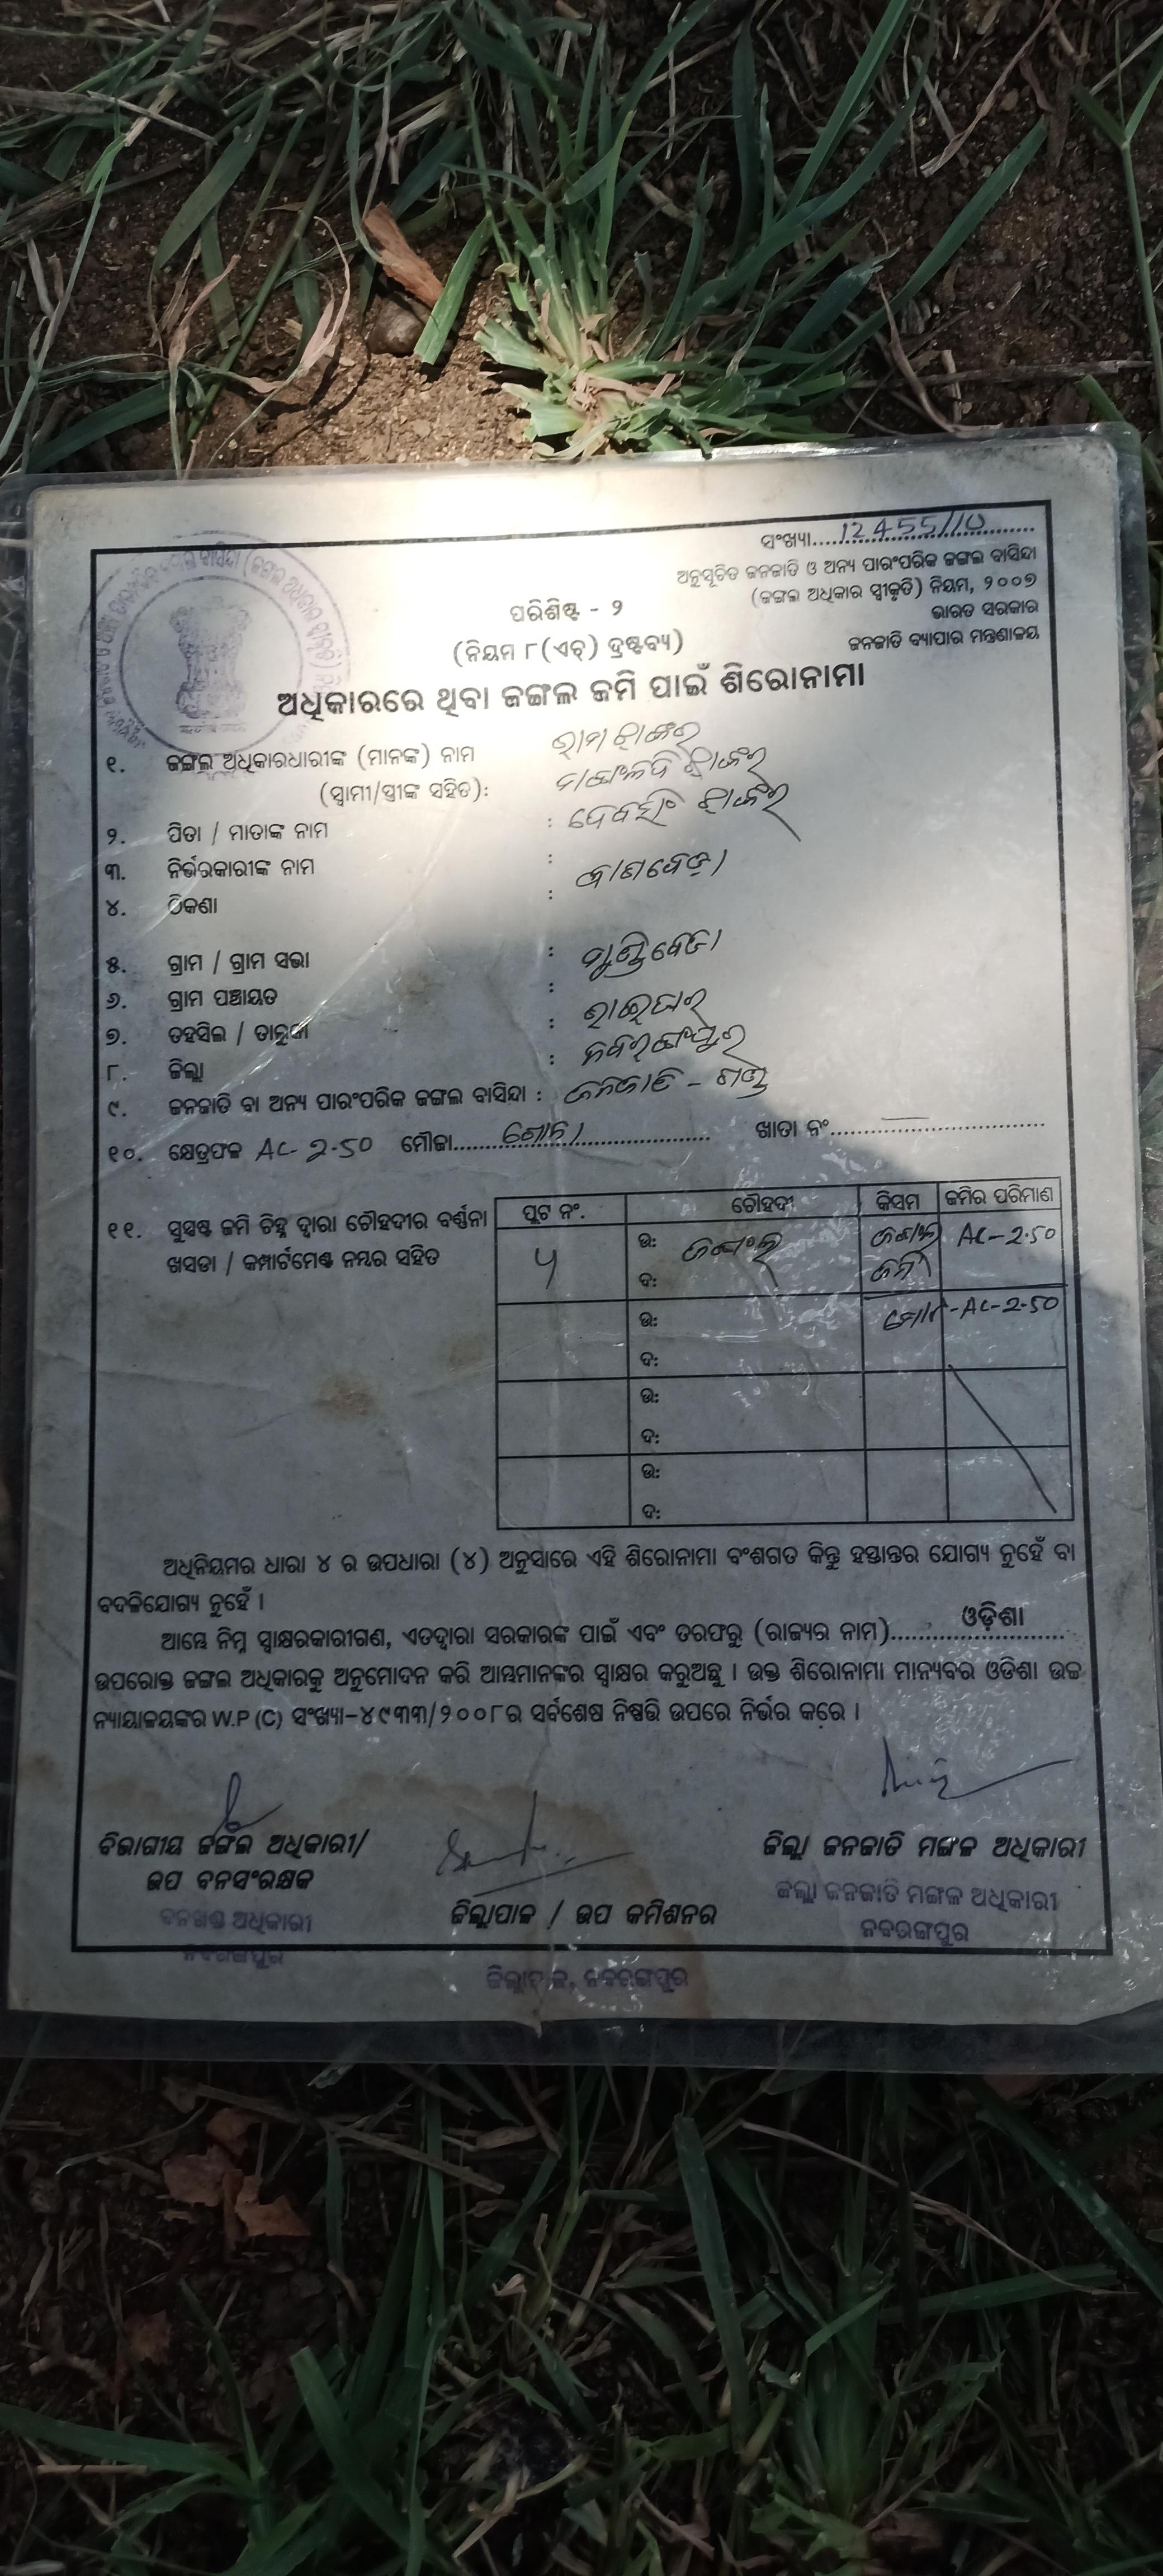 ସଂଖ୍ୟା 12455/10
ଅନୁସୂଚିତ ଜନଜାତି ଓ ଅନ୍ୟ ପାରଂପରିକ ଜଙ୍ଗଲ ବାସିନ୍ଦା
(ଜଙ୍ଗଲ ଅଧିକାର ସ୍ୱୀକୃତି) ନିୟମ, ୨୦୦୭
ଭାରତ ସରକାର
ଜନଜାତି ବ୍ୟାପାର ମନ୍ତ୍ରଣାଳୟ
ପରିଶିଷ୍ଟ - ୨
(ନିୟମ ୮(ଏଚ୍) ଦ୍ରଷ୍ଟବ୍ୟ)
ଅଧିକାରରେ ଥିବା ଜଙ୍ଗଲ ଜମି ପାଇଁ ଶିରୋନାମା
୧. ଜଙ୍ଗଲ ଅଧିକାରଧାରୀଙ୍କ (ମାନଙ୍କ) ନାମ
(ସ୍ୱାମୀ/ସ୍ତ୍ରୀଙ୍କ ସହିତ):
୨. ପିତା / ମାତାଙ୍କ ନାମ :
୩. ନିର୍ଭରକାରୀଙ୍କ ନାମ :
୪. ଠିକଣା :
୫. ଗ୍ରାମ / ଗ୍ରାମ ସଭା :
୬. ଗ୍ରାମ ପଞ୍ଚାୟତ :
୭. ତହସିଲ / ତାଲୁକା : ରାଇଘର
୮. ଜିଲ୍ଲା : ନବରଙ୍ଗପୁର
୯. ଜନଜାତି ବା ଅନ୍ୟ ପାରଂପରିକ ଜଙ୍ଗଲ ବାସିନ୍ଦା : ଜନଜାତି - ଗଣ୍ଡ
୧୦. କ୍ଷେତ୍ରଫଳ AC- 2.50 ମୌଜା ଖାତା ନଂ
୧୧. ସୁସ୍ପଷ୍ଟ ଜମି ଚିହ୍ନ ଦ୍ୱାରା ଚୌହଦୀର ବର୍ଣ୍ଣନା
ଖସଡା / କମ୍ପାର୍ଟମେଣ୍ଟ ନମ୍ବର ସହିତ
ପ୍ଲଟ ନଂ. ଚୌହଦୀ କିସମ ଜମିର ପରିମାଣ
ଉ: ଜଙ୍ଗଲ ଜଙ୍ଗଲ AC-2.50
ଦ: ଜମି
ଉ: ମୋଟ -AC-2.50
ଦ:
ଉ:
ଦ:
ଉ:
ଦ:
ଅଧିନିୟମର ଧାରା ୪ ର ଉପଧାରା (୪) ଅନୁସାରେ ଏହି ଶିରୋନାମା ବଂଶଗତ କିନ୍ତୁ ହସ୍ତାନ୍ତର ଯୋଗ୍ୟ ନୁହେଁ ବା
ବଦଳିଯୋଗ୍ୟ ନୁହେଁ ।
ଆମ୍ଭେ ନିମ୍ନ ସ୍ୱାକ୍ଷରକାରୀଗଣ, ଏତଦ୍ୱାରା ସରକାରଙ୍କ ପାଇଁ ଏବଂ ତରଫରୁ (ରାଜ୍ୟର ନାମ) ଓଡ଼ିଶା
ଉପରୋକ୍ତ ଜଙ୍ଗଲ ଅଧିକାରକୁ ଅନୁମୋଦନ କରି ଆମ୍ଭମାନଙ୍କର ସ୍ୱାକ୍ଷର କରୁଅଛୁ । ଉକ୍ତ ଶିରୋନାମା ମାନ୍ୟବର ଓଡିଶା ଉଚ୍ଚ
ନ୍ୟାୟାଳୟଙ୍କର W.P (C) ସଂଖ୍ୟା-୪୯୩୩/୨୦୦୮ର ସର୍ବଶେଷ ନିଷ୍ପତ୍ତି ଉପରେ ନିର୍ଭର କରେ ।
ବିଭାଗୀୟ ଜଙ୍ଗଲ ଅଧିକାରୀ/
ଉପ ବନସଂରକ୍ଷକ
ବନଖଣ୍ଡ ଅଧିକାରୀ
ନବରଙ୍ଗପୁର
ଜିଲ୍ଲାପାଳ / ଉପ କମିଶନର
ଜିଲ୍ଲାପାଳ, ନବରଙ୍ଗପୁର
ଜିଲ୍ଲା ଜନଜାତି ମଙ୍ଗଳ ଅଧିକାରୀ
ଜିଲ୍ଲା ଜନଜାତି ମଙ୍ଗଳ ଅଧିକାରୀ
ନବରଙ୍ଗପୁର